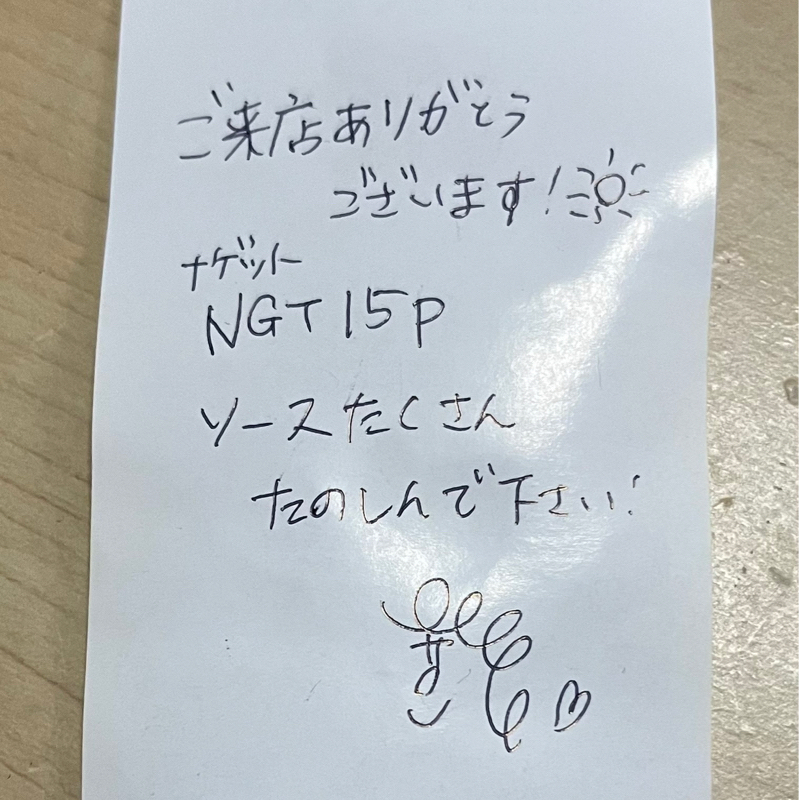 ご来店ありがとう
ございます!
ナゲット
NGT 15P
ソースたくさん
たのしんで下さい!